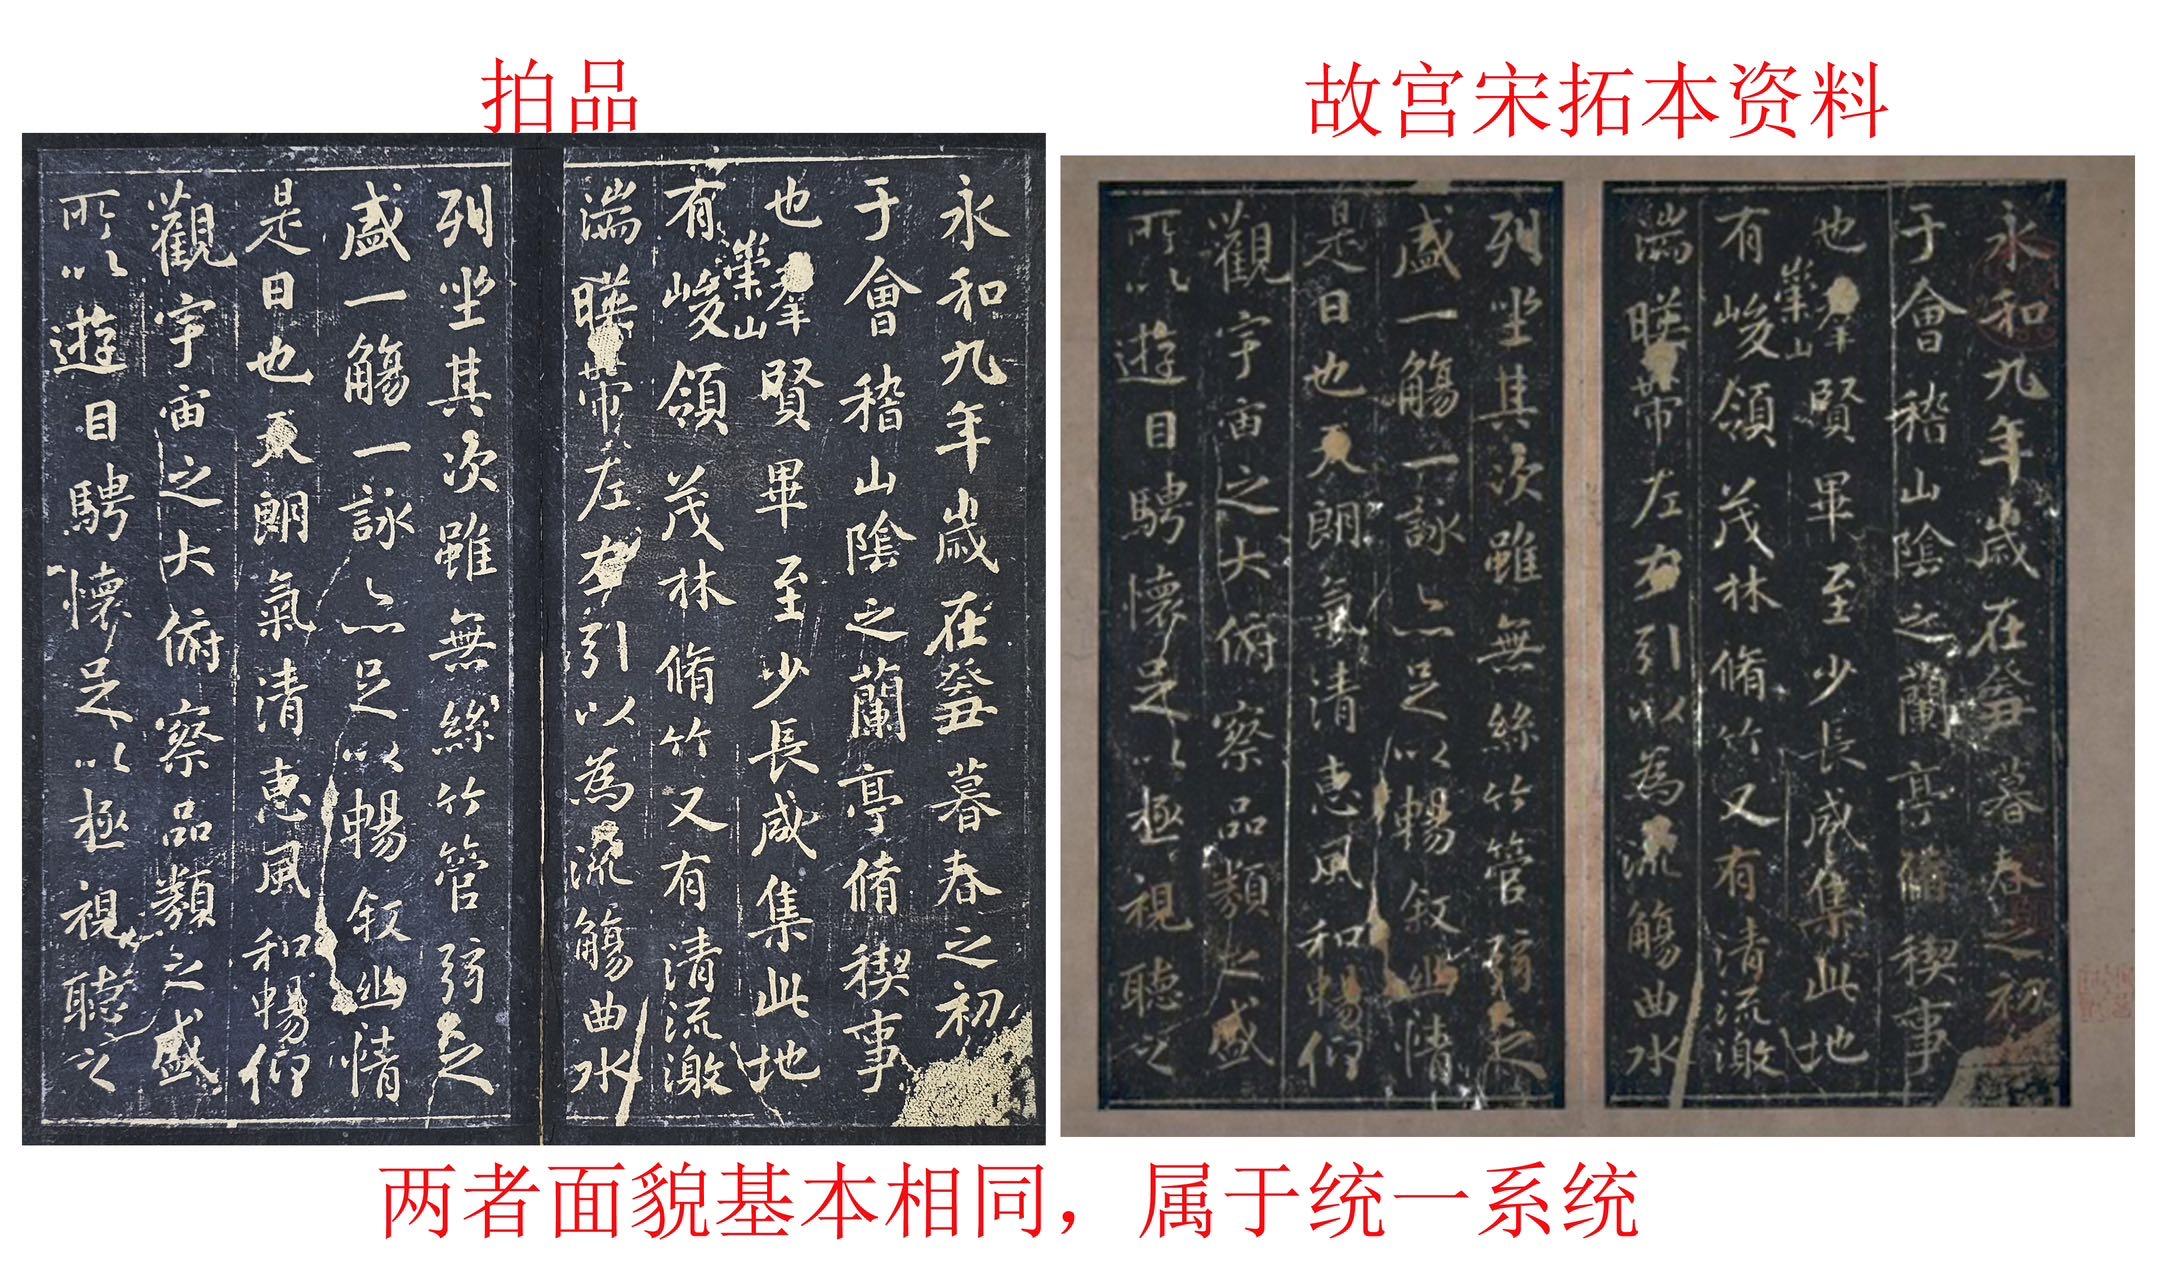 拍品
故宫宋拓本资料
永和九年歲在癸丑暮春之初
于會稽山陰之蘭亭脩稧事
也羣賢畢至少長咸集此地
崇山
有峻領茂林脩竹又有清流激
湍暎帶左右引以為流觴曲水
列坐其次雖無絲竹管弦之
盛一觴一詠亦足以暢叙幽情
是日也天朗氣清惠風和暢仰
觀宇宙之大俯察品類之盛
所以遊目騁懷足以極視聽之
永和九年歲在癸丑暮春之初
于會稽山陰之蘭亭脩稧事
也羣賢畢至少長咸集此地
崇山
有峻領茂林脩竹又有清流激
湍暎帶左右引以為流觴曲水
列坐其次雖無絲竹管弦之
盛一觴一詠亦足以暢叙幽情
是日也天朗氣清惠風和暢仰
觀宇宙之大俯察品類之盛
所以遊目騁懷足以極視聽之
两者面貌基本相同，属于统一系统